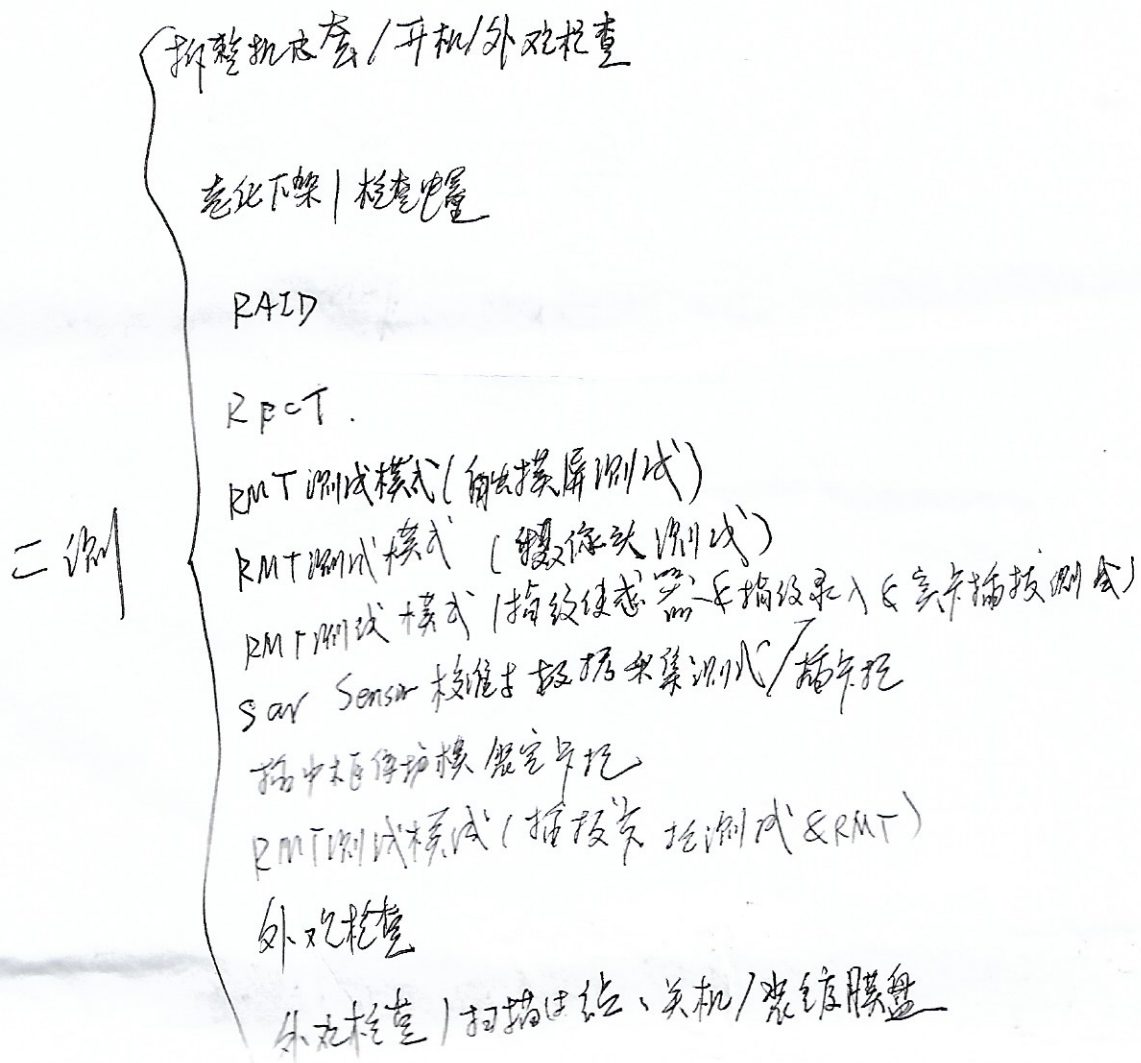 拆整机皮套/开机/外观检查
老化下架/检查电量
RAID
RPCT.
RMT测试模式(触摸屏测试)
二测
RMT测试模式(摄像头测试)
RMT测试模式(指纹传感器&指纹录入&实卡插拔测试)
Sar Sensor校准&数据采集测试/插卡托
撕中框保护膜 锁定卡托
RMT测试模式(插拔卡托测试&RMT)
外观检查
外观检查/扫描过站、关机/装镀膜盘